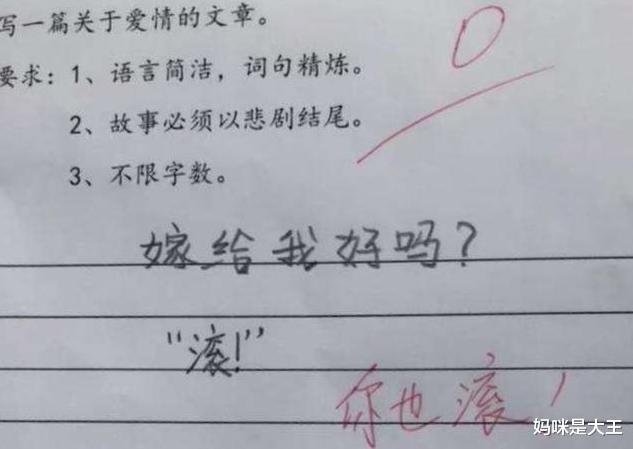 写一篇关于爱情的文章。
0
要求：1、语言简洁，词句精炼。
2、故事必须以悲剧结尾。
3、不限字数。
嫁给我好吗？
“滚！”
你也滚！
妈咪是大王